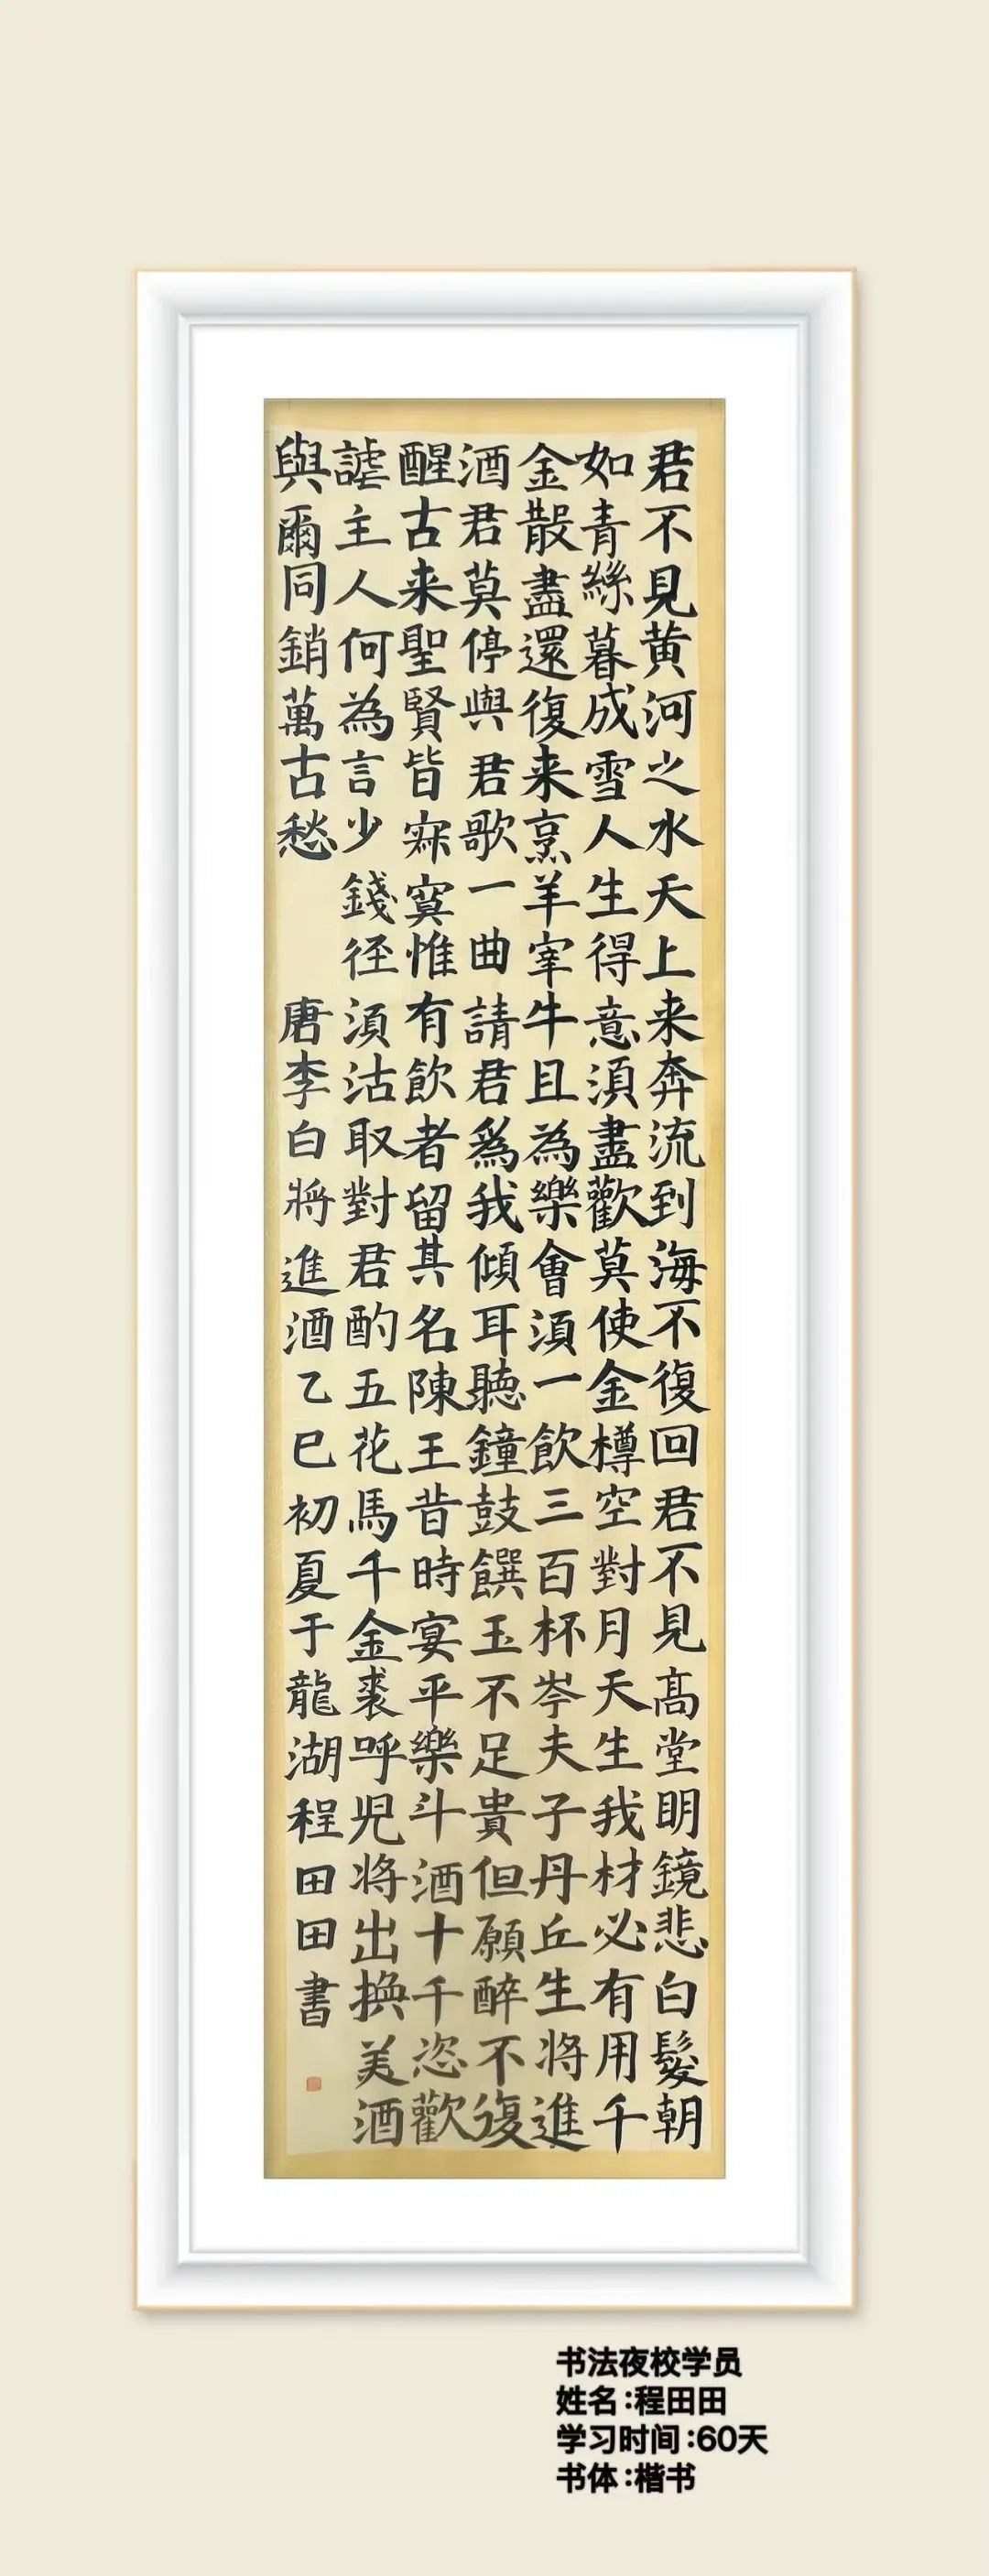 君不見黄河之水天上来奔流到海不復回君不見高堂明鏡悲白髮朝
如青絲暮成雪人生得意須盡歡莫使金樽空對月天生我材必有用千
金散盡還復来烹羊宰牛且為樂會須一飲三百杯岑夫子丹丘生將進
酒君莫停與君歌一曲請君爲我傾耳聽鐘鼓饌玉不足貴但願醉不復
醒古来聖賢皆寂寞惟有飲者留其名陳王昔時宴平樂斗酒十千恣歡
謔主人何為言少錢径須沽取對君酌五花馬千金裘呼児将出換美酒
與爾同銷萬古愁
唐李白將進酒乙巳初夏于龍湖程田田書
书法夜校学员
姓名:程田田
学习时间:60天
书体:楷书